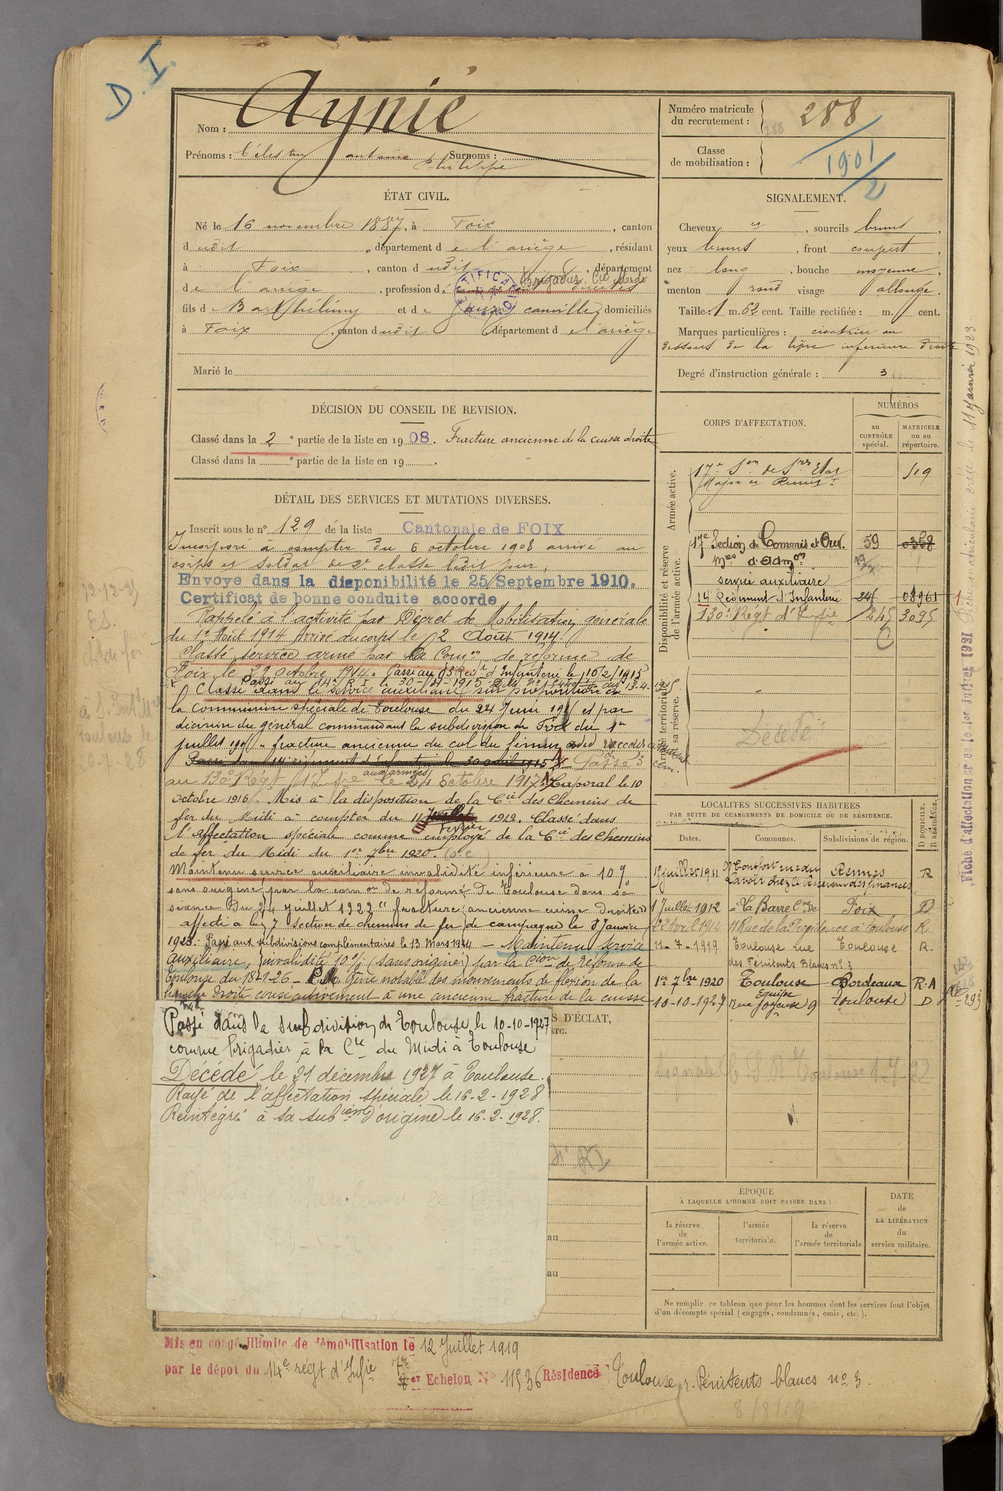 D. I.
Nom : Aynié
Prénoms : Célestin antoine Philippe Surnoms :
Numéro matricule du recrutement : 288
Classe de mobilisation : 1901/2
ÉTAT CIVIL.
Né le 16 novembre 1887, à Foix, canton
dudit, département de l'ariège, résidant
à Foix, canton dudit, département
de l'ariège, profession de Brigadier Cie
fils de Barthélemy et de camille, domiciliés
à Foix, canton dudit, département de l'ariège
Marié le
SIGNALEMENT.
Cheveux, sourcils bruns,
yeux bruns, front
nez long, bouche moyenne,
menton rond visage allongé
Taille: 1 m. 62 cent. Taille rectifiée : m. cent.
Marques particulières : cicatrice au
dessous de la lèvre inférieure droite
Degré d'instruction générale : 3
DÉCISION DU CONSEIL DE REVISION.
Classé dans la 2e partie de la liste en 1908. Fracture ancienne de la cuisse droite
Classé dans la e partie de la liste en 19 .
DÉTAIL DES SERVICES ET MUTATIONS DIVERSES.
Inscrit sous le n° 129 de la liste Cantonale de FOIX
Incorporé à compter du 6 octobre 1908 arrivé au
corps et soldat de 2e classe ledit jour.
Envoyé dans la disponibilité le 25 Septembre 1910.
Certificat de bonne conduite accordé
Rappelé à l'activité par Décret de Mobilisation générale
du 1er Août 1914 Arrivé au corps le 12 Août 1914.
Classé service armé par la Comon de réforme de
Foix le 29 octobre 1914.
Classé dans le service auxiliaire sur proposition de
la Commission spéciale de Toulouse du 24 Juin 1915 et par
décision du général commandant la subdivision de Foix du 1er
juillet 1915 " fracture ancienne du col du fémur
Passé dans 14e régiment d'infanterie le 30 août 1915 Passé
au 130e Régt d'Infie aux armées le 24 Octobre 1915 Caporal le 10
octobre 1916. Mis à la disposition de la Cie des Chemins de
fer du Midi à compter du 11 1919. Classé dans
l'affectation spéciale comme employé de la Cie des Chemins
de fer du Midi du 1er 7bre 1920
Maintenu service auxiliaire invalidité inférieure à 10%
sans origine par la comon de réforme de Toulouse dans sa
séance du 24 juillet 1922 " fracture ancienne cuisse droite "
affecté à la 7e section de chemins de fer de campagne le 8 Janvier
1923. Passé aux subdivisions complémentaires le 13 Mars 1924 – Maintenu Service
Auxiliaire, invalidité 10% (sans origine) par la Cion de Réforme de
Toulouse du 18-1-26 – Gêne notable des mouvements de flexion de la
hanche droite consécutivement à une ancienne fracture de la cuisse
Passé dans la subdivision de Toulouse le 10-10-1927
comme brigadier à la Cie du Midi à Toulouse
Décédé le 21 décembre 1927 à Toulouse.
Rayé de l'affectation spéciale le 16-2-1928
Réintégré à sa subion d'origine le 16-2-1928.
CORPS D'AFFECTATION.
NUMÉROS
au CONTRÔLE spécial.
MATRICULE ou au répertoire.
Armée active.
17e Son de Sres Etat
Major et Recrutt
519
Disponibilité et réserve de l'armée active.
17e Section de Commis et Ouv. 59 0358
mres d'admon
service auxiliaire
14 Régiment d'Infanterie 245 08961
130e Régt d'Infie 245 3095
Armée territoriale et sa réserve.
Décédé
LOCALITÉS SUCCESSIVES HABITÉES
PAR SUITE DE CHANGEMENTS DE DOMICILE OU DE RÉSIDENCE.
Dates. Communes. Subdivisions de région. D DOMICILE. R RÉSIDENCE.
15 juillet 1911 Rennes R
1 Juillet 1912 La Barre Cne de Foix D
22 Avril 1914 11 Rue de la Providence à Toulouse R
11-7-1919 Toulouse rue Toulouse R.
des Pénitents Blancs n° 3
1er 7bre 1920 Toulouse Bordeaux R.A
10-10-1927 rue Joyeuse 9 Toulouse D
S D'ÉCLAT,
ETC.
au
au
ÉPOQUE
À LAQUELLE L'HOMME DOIT PASSER DANS :
la réserve de l'armée active.
l'armée territoriale.
la réserve de l'armée territoriale
DATE de LA LIBÉRATION du service militaire.
Ne remplir ce tableau que pour les hommes dont les services font l'objet
d'un décompte spécial (engagés, condamnés, omis, etc.).
Mis en congé illimité de démobilisation le 12 Juillet 1919
par le dépôt du 14e régt d'Infie 7e Echelon N° 11536 Résidence Toulouse r. Pénitents blancs n° 3.
8/8119
Fiche d'affectation créée le 1er Juillet 1921
Fiche auxiliaire créée le 11 Janvier 1923